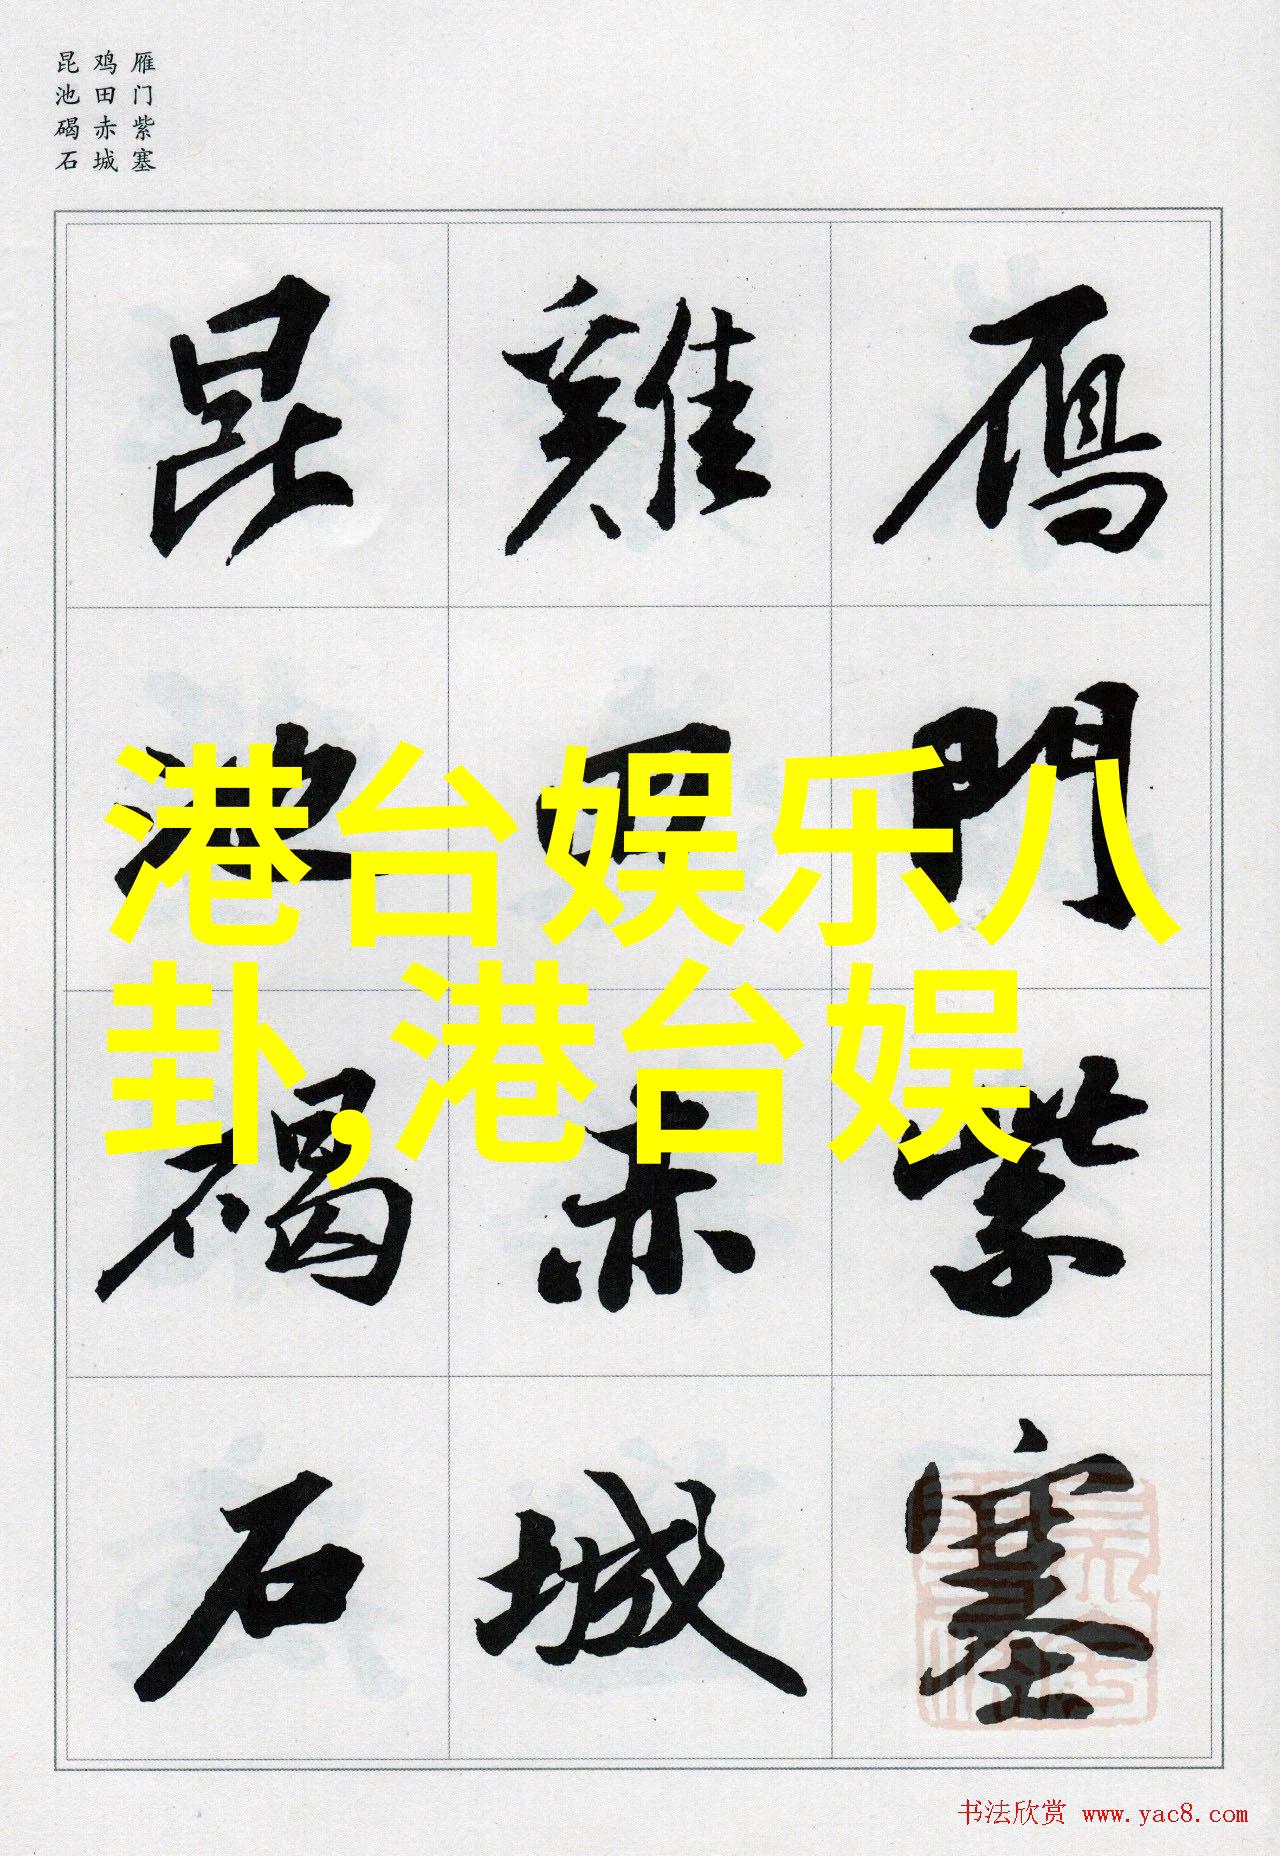 雁门紫塞
鸡田赤城
昆池碣石
鴈門紫塞
雞田赤城
昆池碣石
港台娱乐八
卦,港台娱
书法欣赏 www.yac8.com